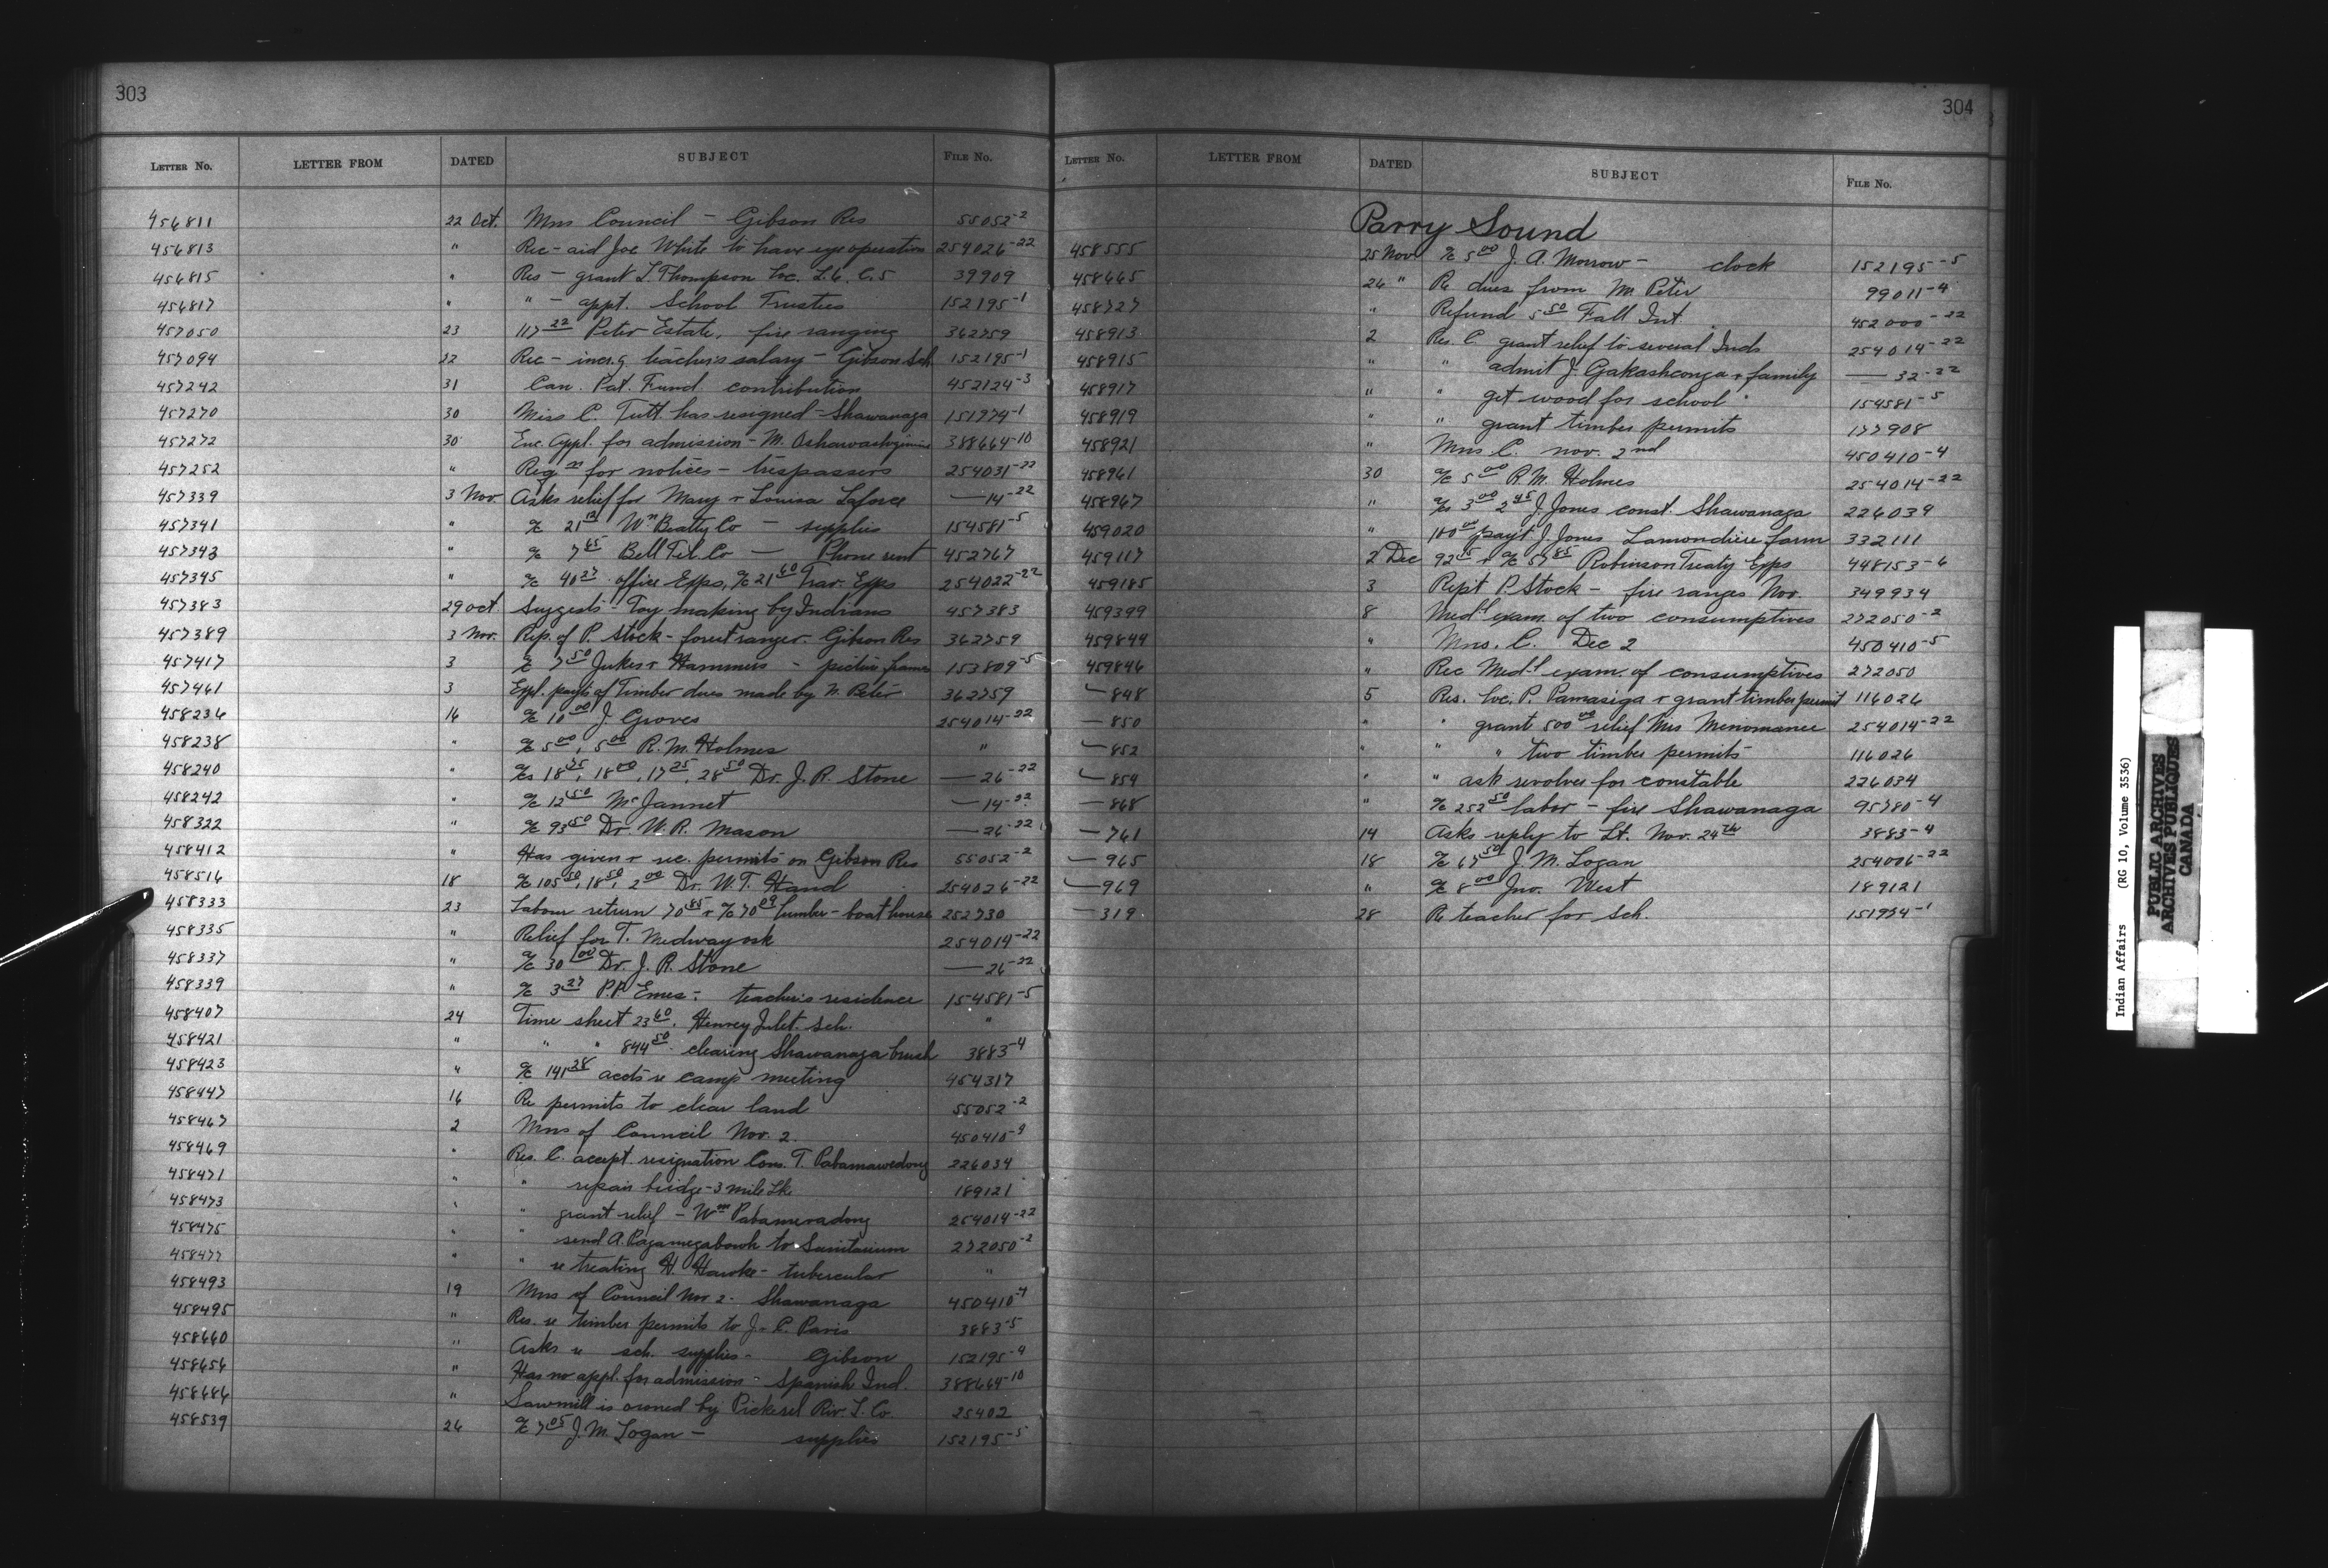 303
LETTER NO. LETTER FROM DATED SUBJECT FILE NO.
456811 22 Oct. Mns Council – Gibson Res 55052-2
456813 " Rec – aid Joe White to have eye operation 254026-22
456815 " Res – grant L. Thompson Loc. L.6. C.5 39909
456817 " " – appt. School Trustees 152195-1
457050 23 117 22 Peter Estate, fire ranging 362759
457094 22 Rec – incrg teacher's salary – Gibson Sch 152195-1
457242 31 Can. Pat. Fund contribution 452124-3
457270 30 Miss C. Tutt has resigned – Shawanaga 151974-1
457272 30 Enc. Appl. for admission – M. 388664-10
457252 " Reqn for notices – trespassers 254031-22
457339 3 Nov Asks relief for Mary + Louisa Laforce — 14-22
457341 " a/c 21 12 Wm Beatty Co — supplies 154581-5
457343 " a/c 7 65 Bell Tel. Co — Phone rent 452767
457345 " a/c 40 27 office Exps, a/c 21 60 Trav. Exps 254022-22
457383 29 oct Suggests – Toy making by Indians 457383
457389 3 Nov. Rep. of P. Stock – forest ranger – Gibson Res 362759
457417 3 a/c 7 50 Jukes + Hammers – picture frames 153809-5
457461 3 Expl. payts of Timber dues made by N. Peter 362759
458236 16 a/c 10 00 J. Groves 254014-22
458238 " a/c 5 00, 5 00 R. M. Holmes "
458240 " a/cs 18 75, 18 00, 17 25, 28 50 Dr. J. R. Stone — 26-22
458242 " a/c 12 50 McJannet — 14-22
458322 " a/c 93 50 Dr. W. R. Mason — 26-22
458412 " Has given + rec. permits on Gibson Res 55052-2
458516 18 a/c 105 50, 18 50, 2 00 Dr. W. T. Hand 254026-22
458333 23 Labour return 70 85 + a/c 70 09 lumber – boathouse 252730
458335 " Relief for T. Medwayosk 254014-22
458337 " a/c 30 00 Dr. J. R. Stone — 26-22
458339 " a/c 3 27 P.P. Emes – teacher's residence 154581-5
458407 24 Time sheet 23 60. Henvey Inlet. Sch. "
458421 " " " 844 50. clearing Shawanaga brush 3883-4
458423 " a/c 141 28 accts re camp meeting 454317
458447 16 Re permits to clear land 55052-2
458467 2 Mns of Council Nov. 2. 450410-3
458469 " Res. C. accept. resignation Cons. T. 226034
458471 " " repair bridge – 3 mile Lk. 189121
458473 " " grant relief – Wm 254014-22
458475 " " send A. Pagamegabowh to Sanitarium 272050-2
458477 " " re treating H. Hawke – tubercular "
458493 19 Mns of Council Nov. 2. Shawanaga 450410-4
458495 " Res. re timber permits to J. C. Paris 3883-5
458660 " Asks re sch. supplies – Gibson 152195-4
458656 " Has no appl. for admission – Spanish Ind. 388664-10
458686 " Sawmill is owned by Pickerel Riv. L. Co. 25402
458539 26 a/c 7 05 J. M. Logan – supplies 152195-5
304
LETTER NO. LETTER FROM DATED SUBJECT FILE NO.
Parry Sound
458555 25 Nov a/c 5 00 J. A. Morrow – clock 152195-5
458665 26 " Re dues from M. Peter 99011-4
458727 " Refund 5 50 Fall Int. 452000-22
458913 2 Res. C grant relief to several Inds 254014-22
458915 " " admit J. Gakashconga + family — 32-22
458917 " " get wood for school 154581-5
458919 " " grant timber permits 177908
458921 " Mns C. nov. 2nd 450410-4
458961 30 a/c 5 00 R. M. Holmes 254014-22
458967 " a/cs 3 00 2 45 J. Jones const. Shawanaga 226034
459020 " 100 00 payt J. Jones Lamondiere farm 332111
459117 2 Dec 92 25 + a/c 57 85 Robinson Treaty Exps 448153-6
459185 3 Rept P. Stock – fire ranger Nov. 349934
459399 8 Medl exam. of two consumptives 272050-2
459844 " Mns. C. Dec 2 450410-5
459846 " Rec Medl exam. of consumptives 272050
— 848 5 Res. loc. P. Pamasiga + grant timber permit 116026
— 850 " " grant 500 00 relief Mrs Menomanee 254014-22
— 852 " " " two timber permits 116026
— 854 " " ask revolver for constable 226034
— 868 " a/c 252 50 labor – fire Shawanaga 95780-4
— 761 14 Asks reply to Lt. Nov. 24th 3883-4
— 965 18 a/c 67 50 J. M. Logan 254006-22
— 969 " a/c 8 00 Jno. West 189121
— 319 28 Re teacher for sch. 151974-1
Indian Affairs (RG 10, Volume 3536)
PUBLIC ARCHIVES
ARCHIVES PUBLIQUES
CANADA